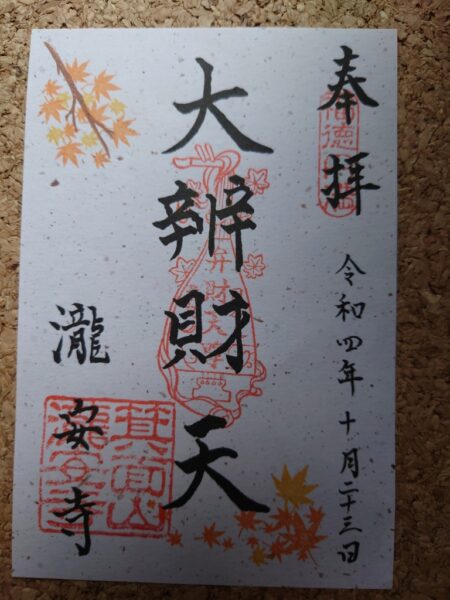 奉拝
令和四年十月二十三日
大辨財天
弁財天
瀧安寺
箕面山
瀧安寺